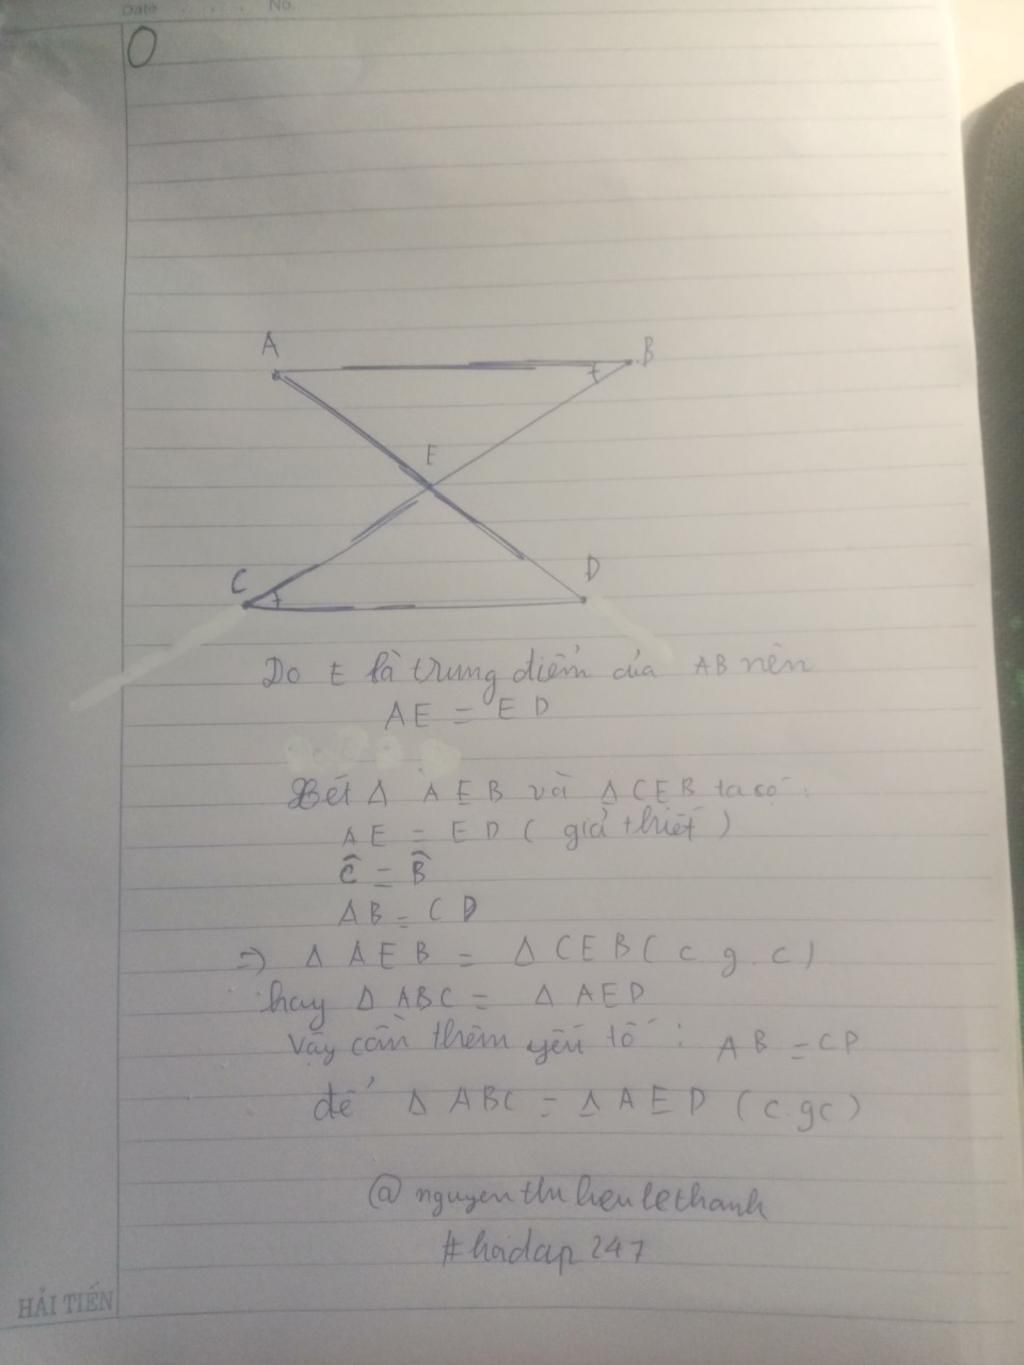 Date No.
A
B
E
C
D
Do E là trung điểm của AB nên
AE = ED
Xét Δ AEB và Δ CEB ta có:
AE = ED ( giả thiết )
Ĉ = B̂
AB = CD
=) Δ AEB = Δ CEB ( c g . c )
hay Δ ABC = Δ AED
Vậy cần thêm yếu tố : AB = CD
để Δ ABC = Δ AED ( c . gc )
#hoidap247
HẢI TIẾN